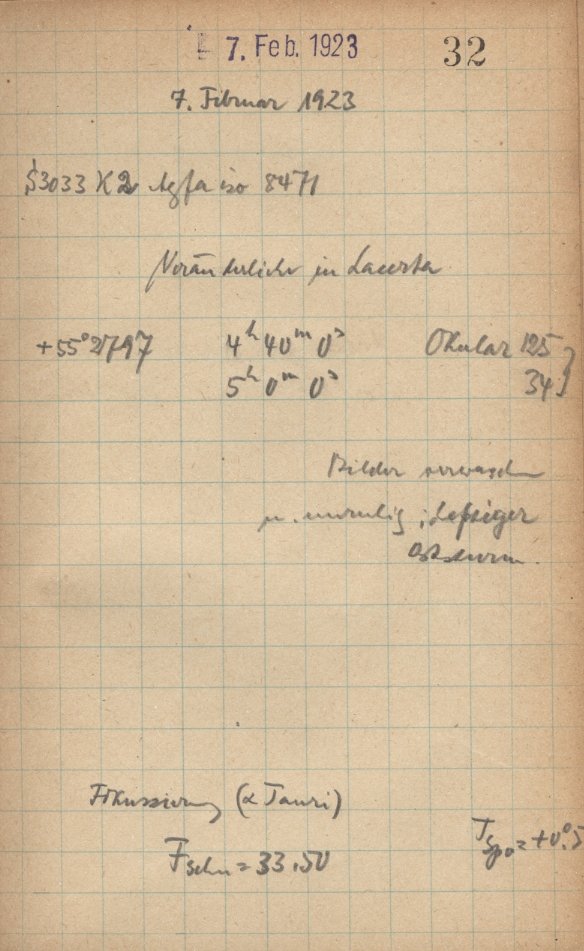 7. Feb. 1923
32
7. Februar 1923
S3033 Agfa iso 8471
Veränderliche in Lacerta
+55°2797 4h 40m 0s Okular 125
5h 0m 0s 34
Bilder verwaschen
u. unruhig; heftiger
Oststurm.
Fokussierung (α Tauri)
= 33.50 = +0°.5